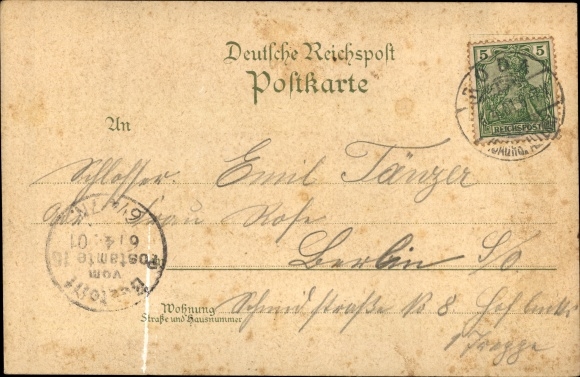 Deutsche Reichspost
Postkarte
5 5
REICHSPOST
An
Schlosser. Emil Tänzer
Frau Rose
Berlin S/O
Wohnung
Straße und Hausnummer
Schmidstraße № 8 Hof links
1 Treppe
Bestellt
vom
Postamte 16
6/4. 01